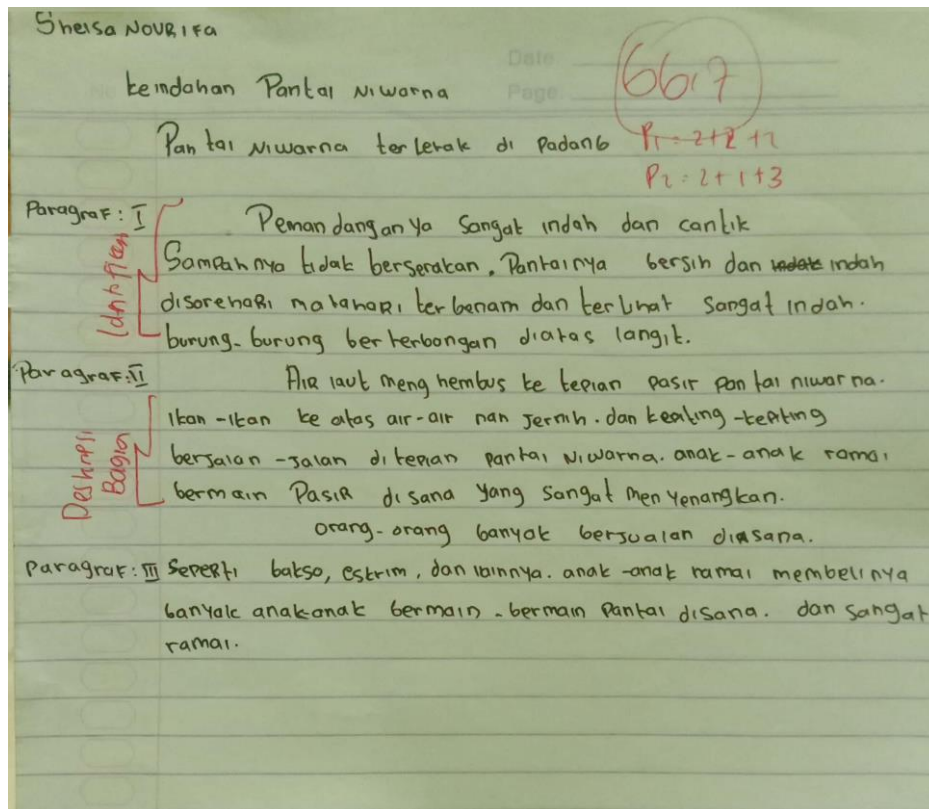 Sheisa NOURIFA
Date
No
Page
66,7
keindahan Pantai Niwarna
Pantai Niwarna terletak di Padang
P1 = 2+2+2
P2 : 2+1+3
Paragraf : I
Pemandanganya sangat indah dan cantik
Identifikasi
Sampahnya tidak berserakan. Pantainya bersih dan indah
disorehari matahari terbenam dan terlihat sangat indah.
burung-burung berterbangan diatas langit.
Paragraf : II
Air laut menghembus ke tepian pasir pantai niwarna.
Deskripsi Bagian
Ikan-ikan ke atas air-air nan jernih. dan kepiting-kepiting
berjalan-jalan di tepian pantai Niwarna. anak-anak ramai
bermain Pasir disana yang sangat menyenangkan.
orang-orang banyak berjualan disana.
Paragraf : III Seperti bakso, eskrim, dan lainnya. anak-anak ramai membelinya
banyak anak-anak bermain-bermain Pantai disana. dan sangat
ramai.